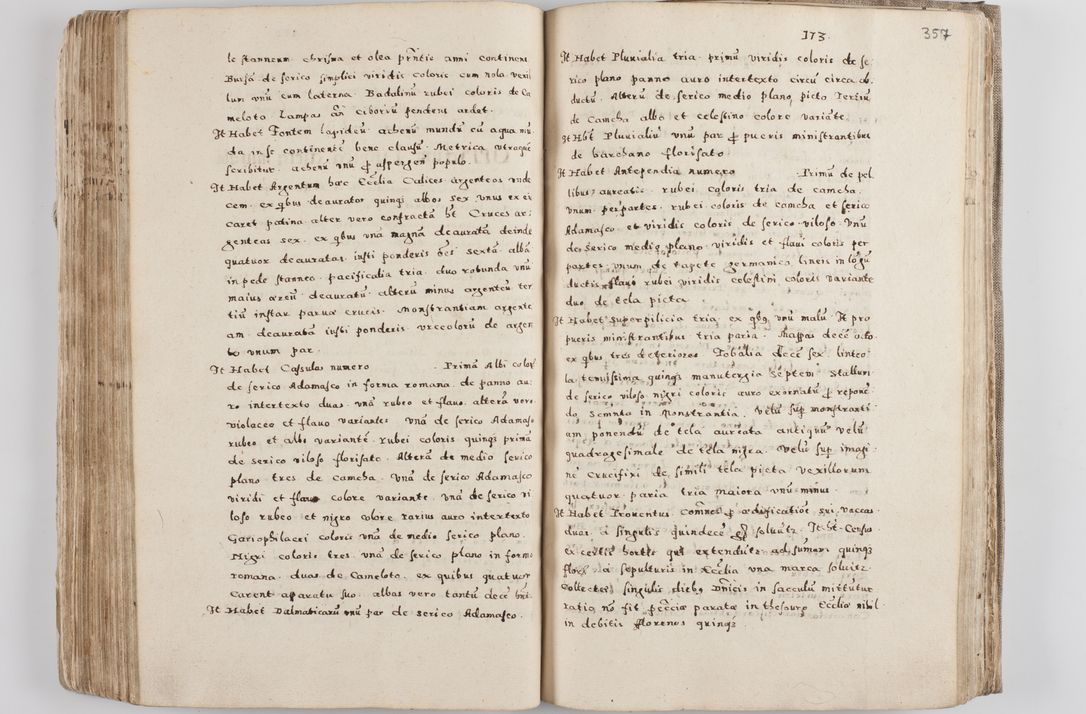 le stanneum chrisma et olea pñtis anni continens
Bursã de serico simplici viridis coloris cum nola vexil
lum vnũ cum laterna. Badalinũ rubei coloris de Ca
melota Lampas añ ciboriũ pendens ardet.
It Habet Fontem lapideũ ahenũ mundũ cũ aqua mũ
da in se continentẽ bene clausũ. Metrica vtroque
scribitur. ahenũ vnũ ꝓ aspergen populo.
It Habet Argentum hæc Ecclia Calices argenteos vnde
cem. ex qbus deauratos quinqꝫ albos sex vnus ex eis
caret patina alter vero confractã ht. Cruces ar
genteas sex. ex qbus vnã magnã deauratã deinde
quatuor deauratas iusti ponderis oẽs sextã albã
in pede stanneo. pacificalia tria duo rotunda vnũ
maius æreũ deauratũ alterũ minus argenteũ ter
tiũ instar parua crucis. Monstrantiam argente
am deauratã iusti ponderis vrceolorũ de argen
to vnum par.
It Habet Casulas numero . Primã Albi color
de serico Adamasco in forma romana. de panno au
ro intertexto duas. vnã rubeo et flauo. alterã vero
violaceo et flauo variantes. Vnã de serico Adamasc
rubeo et albo variantẽ. rubei coloris quinqꝫ primã
de serico viloso florisato. Alterã de medio serico
plano tres de camcha. Vnã de serico Adamasco
viridi et flauo colore variante. Vnã de serico vi
loso rubeo et nigro colore rarius auro intertexto
Gariophilacei coloris vnã de medio serico plano.
Nigri coloris tres. vnã de serico plano in forma
romana. duas de Cameloto. ex quibus quatuor
Carent aparatu suo. albas vero tantũ decẽ hñt.
It Habet Dalmaticarũ vnũ par de serico Adamasco.
173. 357
It Habet Pluuialia tria. primũ viridis coloris de se
rico plano panno auro intertexto circũ circa ob
ductũ. Alterũ de serico medio plano picto Tertiũ
de Camcha albo et celestino colore variãte
It Hãbt Pluuialiũ vnũ par ꝓ pueris ministrantibus
de barchano florisato.
It Habet Antependia numero . Primũ de pel
libus aureatis. rubei coloris tria de camcha.
vnum per partes. rubei coloris de camcha et serico
Adamasco et viridis coloris de serico viloso. Vnũ
de serico medio plano viridis et flaui coloris per
partes. vnum de tapete germanico lineis in lõgũ
ductis flauo rubei viridis celestini coloris variante
duo de tela picta.
It Habet superpilicia tria ex qbꝯ vnũ malũ. It pro
pueris ministrantibus tria paria. Mappas decẽ octo
ex qbus tres deteriores. Tobalia decẽ sex linteo
la tenuissima quinqꝫ manutergia septem Stallum
de serico viloso nigri coloris auro exornatũ ꝓ reponẽ
do Scmnto in Monstrantia. Velũ sup monstranti
am ponendũ de tela aureata antiquũ velũ
quadragesimale de tela nigra. Velũ sup imagi
nẽ Crucifixi de simili tela picta vexillorum
quatuor paria tria maiora vnũ minus.
It Habet Prouentus comnes ꝓ ædificatiõe sui. vaccas
duas a singulis quindecẽ solvũtr. It ht Census
ex certis hortis qui extenduntr ad sumam quinqꝫ
flor a sepulturis in Ecclia vna marca solvitr.
Collectes singulis diebꝯ Dñicis in sacculũ mittũtur
ratio nõ fit pecciæ paratæ in thesauro Ecclæ nihil.
in debitis florenos quinqꝫ.